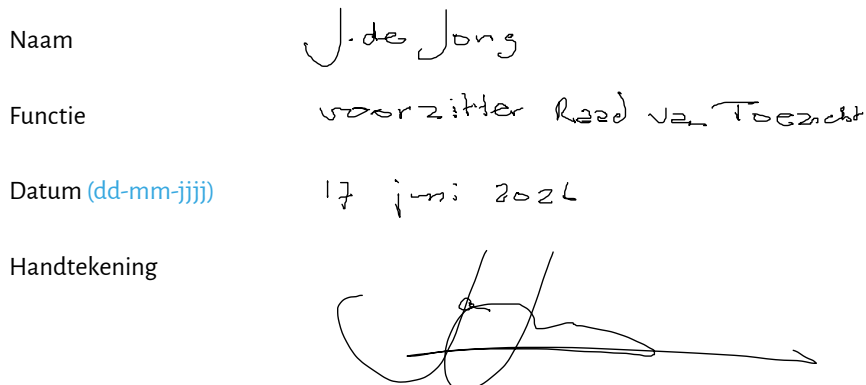 Naam J. de Jong
Functie voorzitter Raad van Toezicht
Datum (dd-mm-jjjj) 17 juni 2026
Handtekening